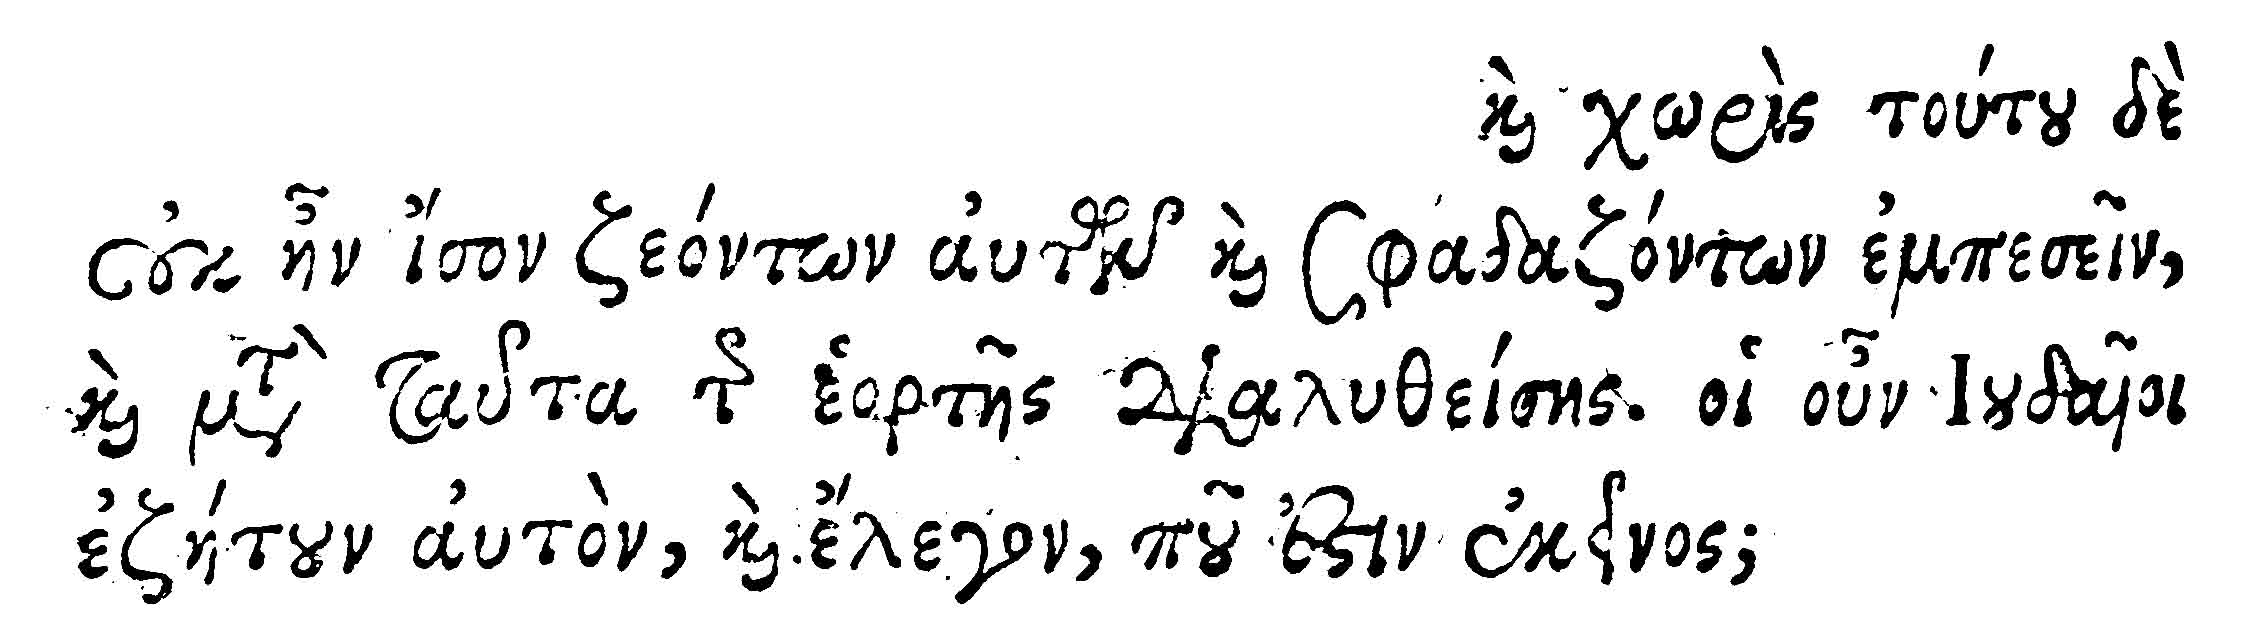 καὶ χωρὶς τούτου δὲ
οὐκ ἦν ἴσον ζεόντων αὐτῶν καὶ σφαδαζόντων ἐμπεσεῖν,
καὶ μετὰ ταῦτα τῆς ἑορτῆς διαλυθείσης. οἱ οὖν Ιουδαῖοι
ἐζήτουν αὐτὸν, καὶ ἔλεγον, ποῦ ἐστιν ἐκεῖνος;